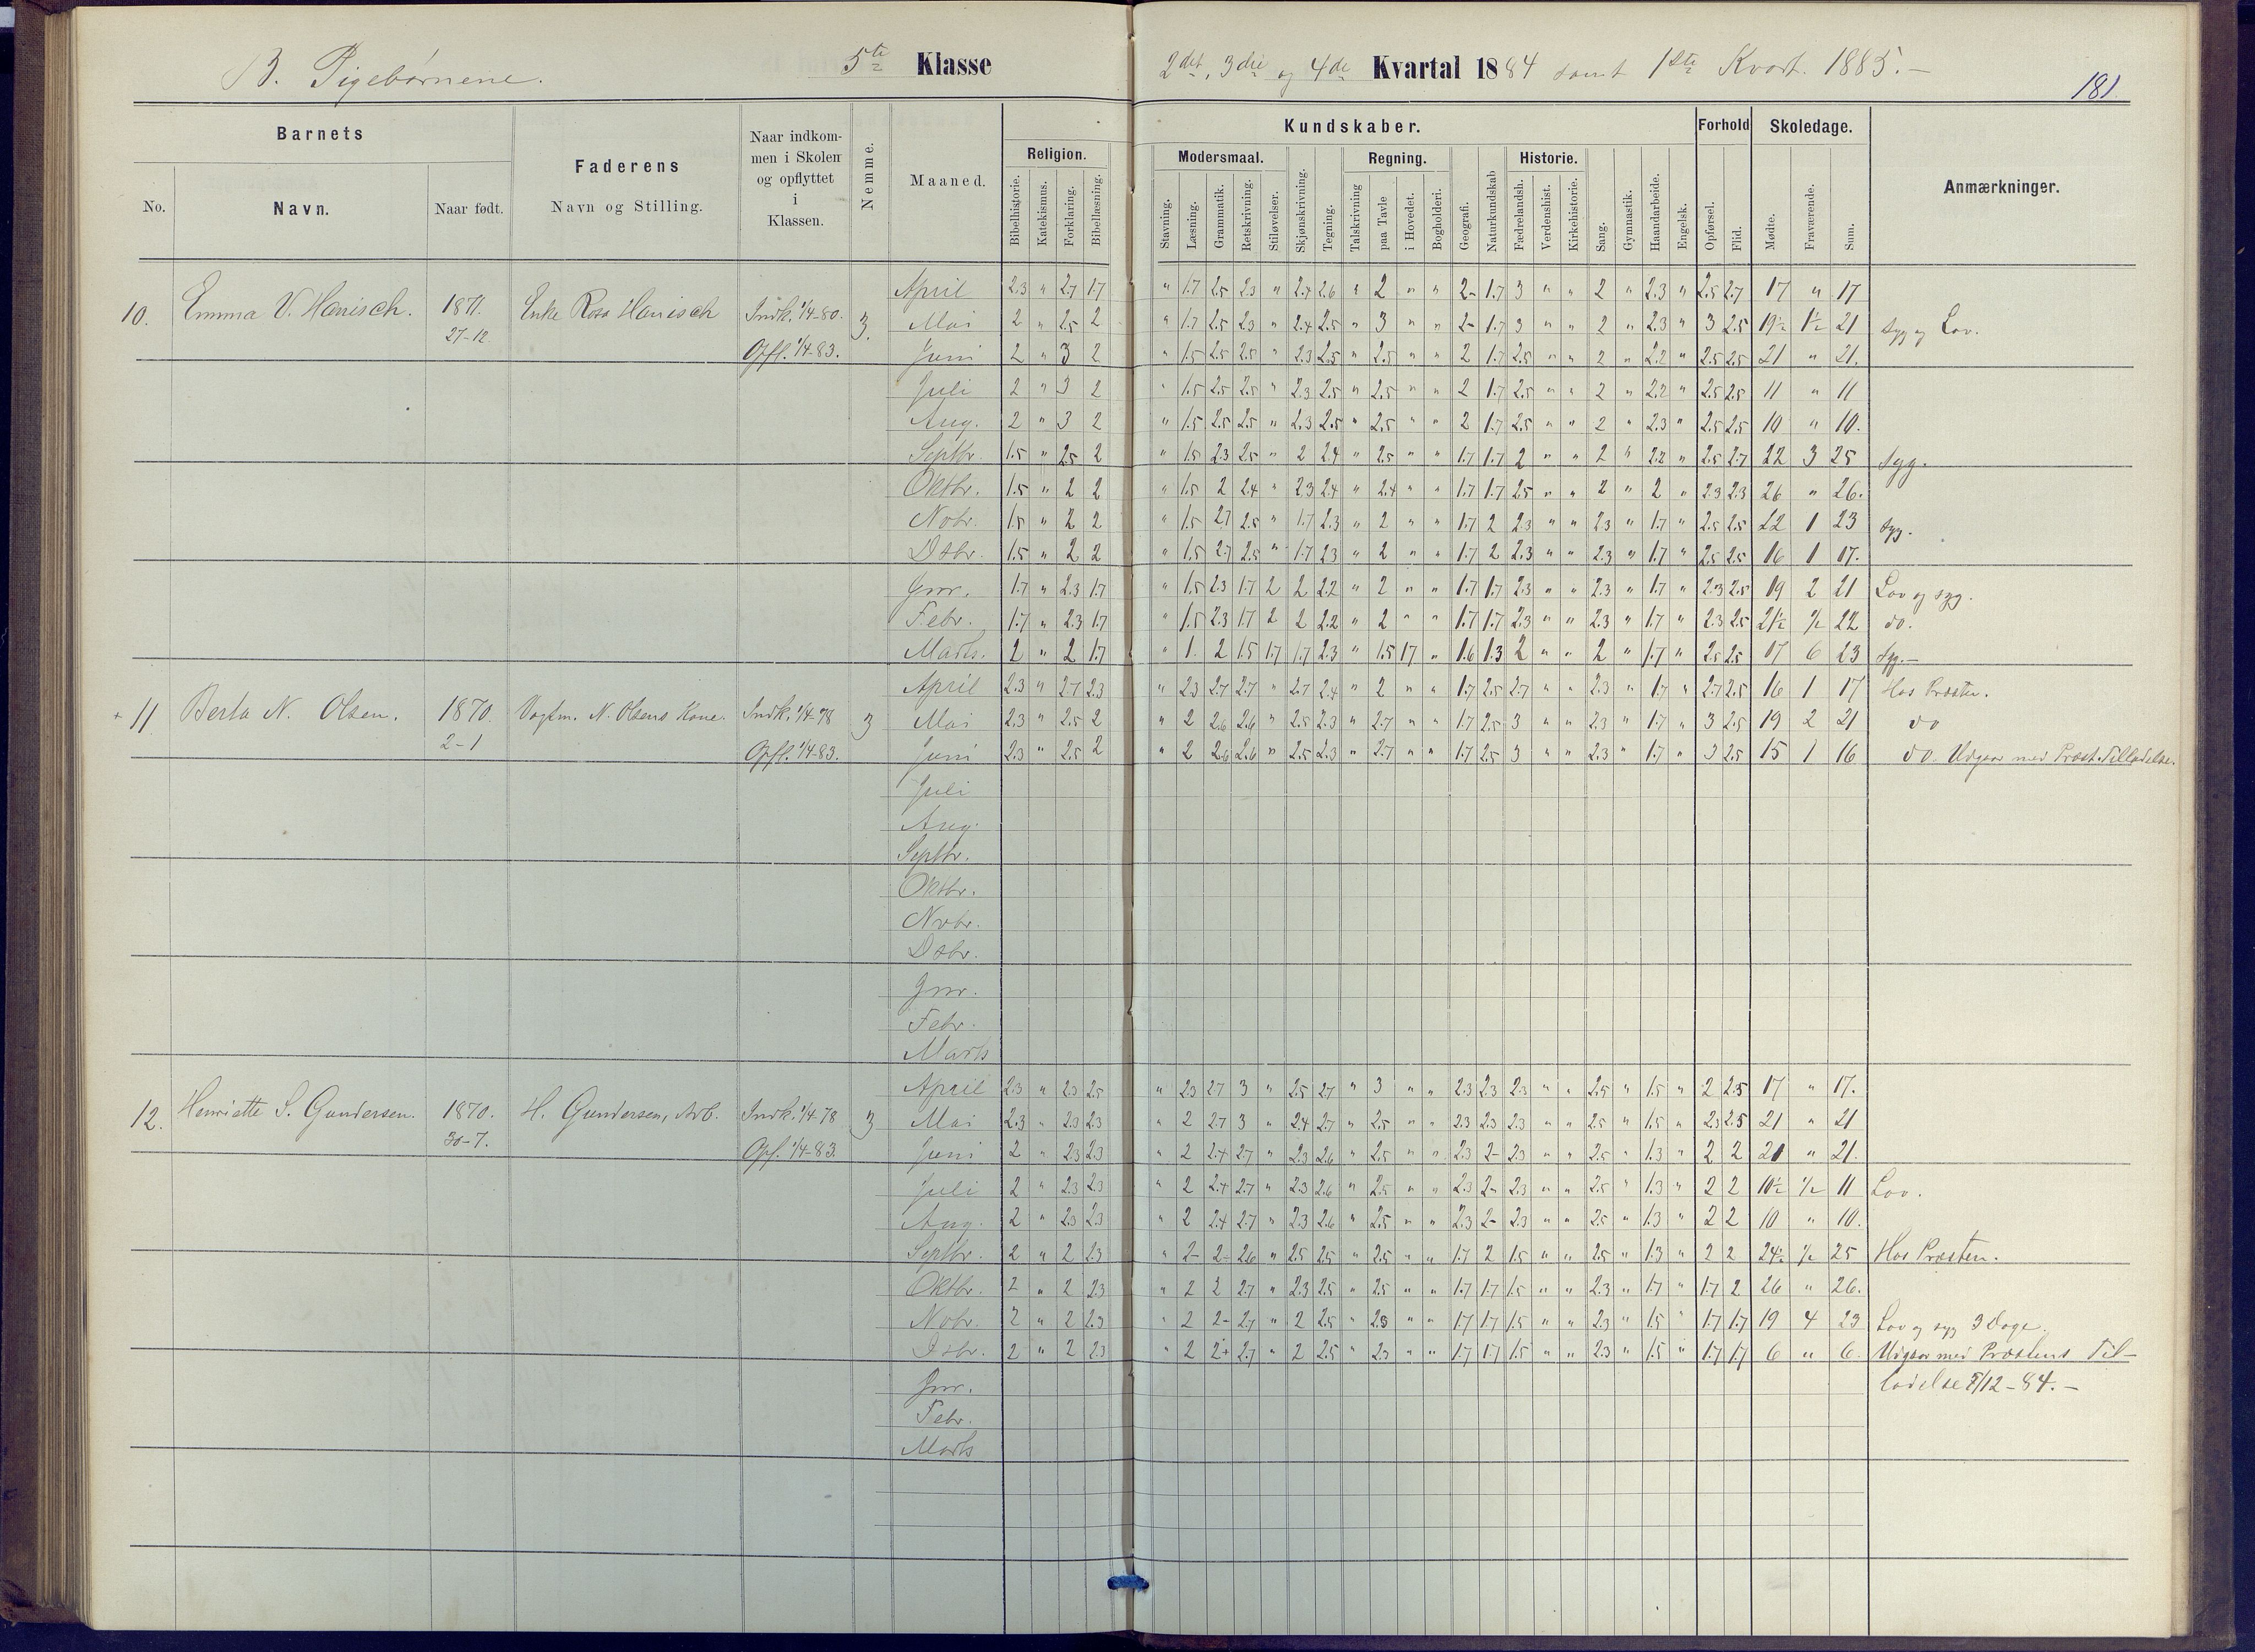 B. Pigebørnene. 5te Klasse 2det, 3die og 4de Kvartal 1884 samt 1ste Kvart. 1885.-
181.
Barnets
No. Navn. Naar født.
Faderens
Navn og Stilling.
Naar indkom-
men i Skolen
og opflyttet
i
Klassen.
Nemme.
Maaned.
Kundskaber.
Religion.
Bibelhistorie. Katekismus. Forklaring. Bibellæsning.
Modersmaal.
Stavning. Læsning. Grammatik. Retskrivning. Stiløvelser.
Skjønskrivning. Tegning.
Regning.
Talskrivning paa Tavle i Hovedet. Bogholderi.
Geografi. Naturkundskab
Historie.
Fædrelandsh. Verdenshist. Kirkehistorie.
Sang. Gymnastik. Haandarbeide. Engelsk.
Forhold
Opførsel. Flid.
Skoledage.
Mødte. Fraværende. Sum.
Anmærkninger.
10. Emma V. Hanisch. 1871. 27-12. Enke Rosa Hanisch Indk. 1/4-80. Opfl. 1/4-83. 3.
April 2.3 " 2.7 1.7 " 1.7 2.5 2.3 " 2.4 2.6 " 2 " " 2- 1.7 3 " " 2 " 2.3 " 2.5 2.7 17 " 17
Mai 2 " 2.5 2 " 1.7 2.5 2.3 " 2.4 2.5 " 3 " " 2- 1.7 3 " " 2 " 2.3 " 3 2.5 19½ 1½ 21 Syg og Lov.
Juni 2 " 3 2 " 1.5 2.5 2.5 " 2.3 2.5 " 2.5 " " 2 1.7 2.5 " " 2 " 2.2 " 2.5 2.5 21 " 21.
Juli 2 " 3 2 " 1.5 2.5 2.5 " 2.3 2.5 " 2.5 " " 2 1.7 2.5 " " 2 " 2.2 " 2.5 2.5 11 " 11
Aug. 2 " 3 2 " 1.5 2.5 2.5 " 2.3 2.5 " 2.5 " " 2 1.7 2.5 " " 2 " 2.3 " 2.5 2.5 10 " 10.
Septbr. 1.5 " 2.5 2 " 1.5 2.3 2.5 " 2 2.4 " 2.5 " " 1.7 1.7 2 " " 2 " 2.2 " 2.5 2.7 22 3 25 Syg.
Oktbr. 1.5 " 2 2 " 1.5 2 2.4 " 2.3 2.4 " 2.4 " " 1.7 1.7 2.5 " " 2 " 2 " 2.3 2.3 26 " 26.
Nobr. 1.5 " 2 2 " 1.5 2.7 2.5 " 1.7 2.3 " 2 " " 1.7 2 2.3 " " 2.3 " 1.7 " 2.5 2.5 22 1 23 Syg.
Dsbr. 1.5 " 2 2 " 1.5 2.7 2.5 " 1.7 2.3 " 2 " " 1.7 2 2.3 " " 2.3 " 1.7 " 2.5 2.5 16 1 17.
Jnr. 1.7 " 2.3 1.7 " 1.5 2.3 1.7 2 2 2.2 " 2 " " 1.7 1.7 2.3 " " 2.3 " 1.7 " 2.3 2.5 19 2 21 Lov og syg.
Febr. 1.7 " 2.3 1.7 " 1.5 2.3 1.7 2 2 2.2 " 2 " " 1.7 1.7 2.3 " " 2.3 " 1.7 " 2.3 2.5 21½ ½ 22 do.
Marts. 2 " 2 1.7 " 1. 2 1.5 1.7 1.7 2.3 " 1.5 1.7 " 1.6 1.3 2 " " 2 " 1.7 " 2.5 2.5 17 6 23 Syg.-
+ 11 Berta N. Olsen. 1870. 2-1 Vagtm. N. Olsens Kone. Indk. 1/4-78 Opfl. 1/4-83. 3
April 2.3 " 2.7 2.3 " 2.3 2.7 2.7 " 2.7 2.4 " 2 " " 1.7 2.5 2.7 " " 2.3 " 1.7 " 2.7 2.5 16 1 17 Hos Præsten.
Mai 2.3 " 2.5 2 " 2 2.6 2.6 " 2.5 2.3 " 2.7 " " 1.7 2.5 3 " " 2.3 " 1.7 " 3 2.5 19 2 21 do
Juni 2.3 " 2.5 2 " 2 2.6 2.6 " 2.5 2.3 " 2.7 " " 1.7 2.5 3 " " 2.3 " 1.7 " 3 2.5 15 1 16 do. Udgaar med Præst. Tilladelse.
Juli
Aug.
Septbr.
Oktbr.
Nvbr.
Dsbr.
Jnr.
Febr.
Marts
12. Henriette S. Gundersen. 1870. 30-7. H. Gundersen, Arb. Indk. 1/4-78 Opf. 1/4-83. 3
April 2.3 " 2.3 2.5 " 2.3 2.7 3 " 2.5 2.7 " 3 " " 2.3 2.3 2.3 " " 2.5 " 1.5 " 2 2.5 17 " 17.
Mai 2.3 " 2.3 2.3 " 2 2.7 3 " 2.4 2.7 " 2.5 " " 2.3 2.3 2.3 " " 2.5 " 1.5 " 2.3 2.5 21 " 21
Juni 2 " 2.3 2.3 " 2 2.4 2.7 " 2.3 2.6 " 2.5 " " 2.3 2- 2.3 " " 2.5 " 1.3 " 2 2 21 " 21.
Juli 2 " 2.3 2.3 " 2 2.4 2.7 " 2.3 2.6 " 2.5 " " 2.3 2- 2.3 " " 2.5 " 1.3 " 2 2 10½ ½ 11 Lov.
Aug. 2 " 2.3 2.3 " 2 2.4 2.7 " 2.3 2.6 " 2.5 " " 2.3 2- 2.3 " " 2.5 " 1.3 " 2 2 10 " 10.
Septbr. 2 " 2 2.3 " 2- 2- 2.6 " 2.5 2.5 " 2.5 " " 1.7 2 1.5 " " 2.5 " 1.3 " 2 2 24½ ½ 25 Hos Præsten.
Oktbr. 2 " 2 2.3 " 2 2 2.7 " 2.3 2.5 " 2.5 " " 1.7 1.7 1.5 " " 2.3 " 1.7 " 1.7 2 26 " 26.
Nobr. 2 " 2 2.3 " 2 2- 2.7 " 2 2.5 " 2.3 " " 1.7 1.7 1.5 " " 2.3 " 1.5 " 1.7 1.7 19 4 23 Lov og syg 3 Dage.
Dsbr. 2 " 2 2.3 " 2 2+ 2.7 " 2 2.5 " 2.3 " " 1.7 1.7 1.5 " " 2.3 " 1.5 " 1.7 1.7 6 " 6. Udgaar med Præstens Til-
Jnr. ladelse 8/12-84.-
Febr.
Marts